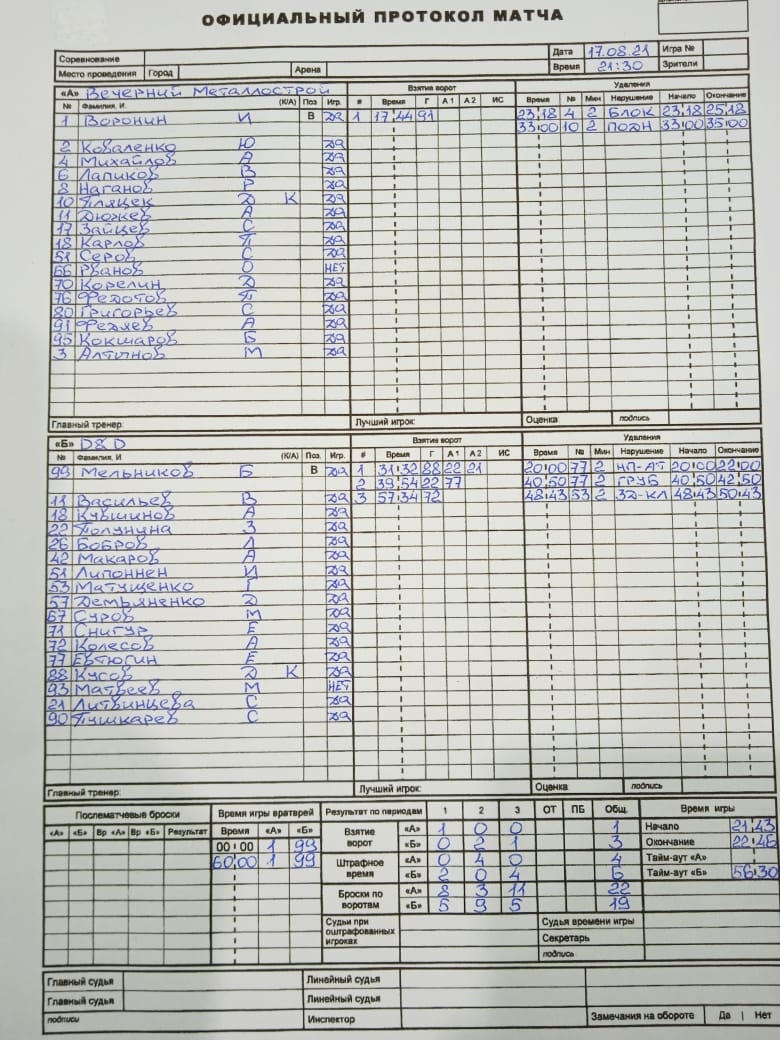 ОФИЦИАЛЬНЫЙ ПРОТОКОЛ МАТЧА
Соревнование Дата 17.08.21 Игра №
Место проведения Город Арена Время 21:30 Зрители
«А» Вечерний Металлострой Взятие ворот Удаления
№ Фамилия, И. (К/А) Поз Игр. # Время Г А1 А2 ИС Время № Мин Нарушение Начало Окончание
1 Воронин И В да 1 17 44 91 23 18 4 2 БЛОК 23 18 25 18
33 00 10 2 ПОДН 33 00 35 00
2 Коваленко Ю да
4 Михайлов А да
6 Лапиков В да
8 Наганов Р да
10 Пляцек Д К да
11 Дюжев А да
17 Зайцев С да
18 Карлов П да
51 Серов С да
66 Рванов О НЕТ
70 Корелин Д да
76 Федотов П да
80 Григорьев С да
91 Федяев А да
95 Кокшаров Б да
3 Алтынов М да
Главный тренер: Лучший игрок: Оценка подпись
«Б» D&D Взятие ворот Удаления
№ Фамилия, И (К/А) Поз Игр. # Время Г А1 А2 ИС Время № Мин Нарушение Начало Окончание
99 Мельников Б В да 1 31 32 88 22 21 20 00 77 2 НП-АТ 20 00 22 00
2 39 54 22 77 40 50 77 2 ГРУБ 40 50 42 50
11 Васильев В да 3 57 34 72 48 43 53 2 ЗД-КЛ 48 43 50 43
18 Кувшинов А да
22 Полунина З да
26 Бобров Л да
42 Макаров А да
51 Липоннен И да
53 Матущенко Г да
57 Демьяненко Д да
67 Суров М да
71 Снигур Е да
72 Колесов А да
77 Евтюгин Е да
88 Кусов Д К да
93 Матвеев М НЕТ
21 Литвинцева С да
90 Пушкарев С да
Главный тренер: Лучший игрок: Оценка подпись
Послематчевые броски Время игры вратарей Результат по периодам 1 2 3 ОТ ПБ Общ. Время игры
«А» «Б» Вр «А» Вр «Б» Результат Время «А» «Б» Взятие ворот «А» 1 0 0 1 Начало 21 43
00 00 1 99 «Б» 0 2 1 3 Окончание 22 46
60 00 1 99 Штрафное время «А» 0 4 0 4 Тайм-аут «А»
«Б» 2 0 4 6 Тайм-аут «Б» 56 30
Броски по воротам «А» 8 3 11 22
«Б» 5 9 5 19
Судьи при оштрафованных игроках Судья времени игры
Секретарь
подпись
Главный судья Линейный судья
Главный судья Линейный судья
подписи Инспектор Замечания на обороте Да | Нет